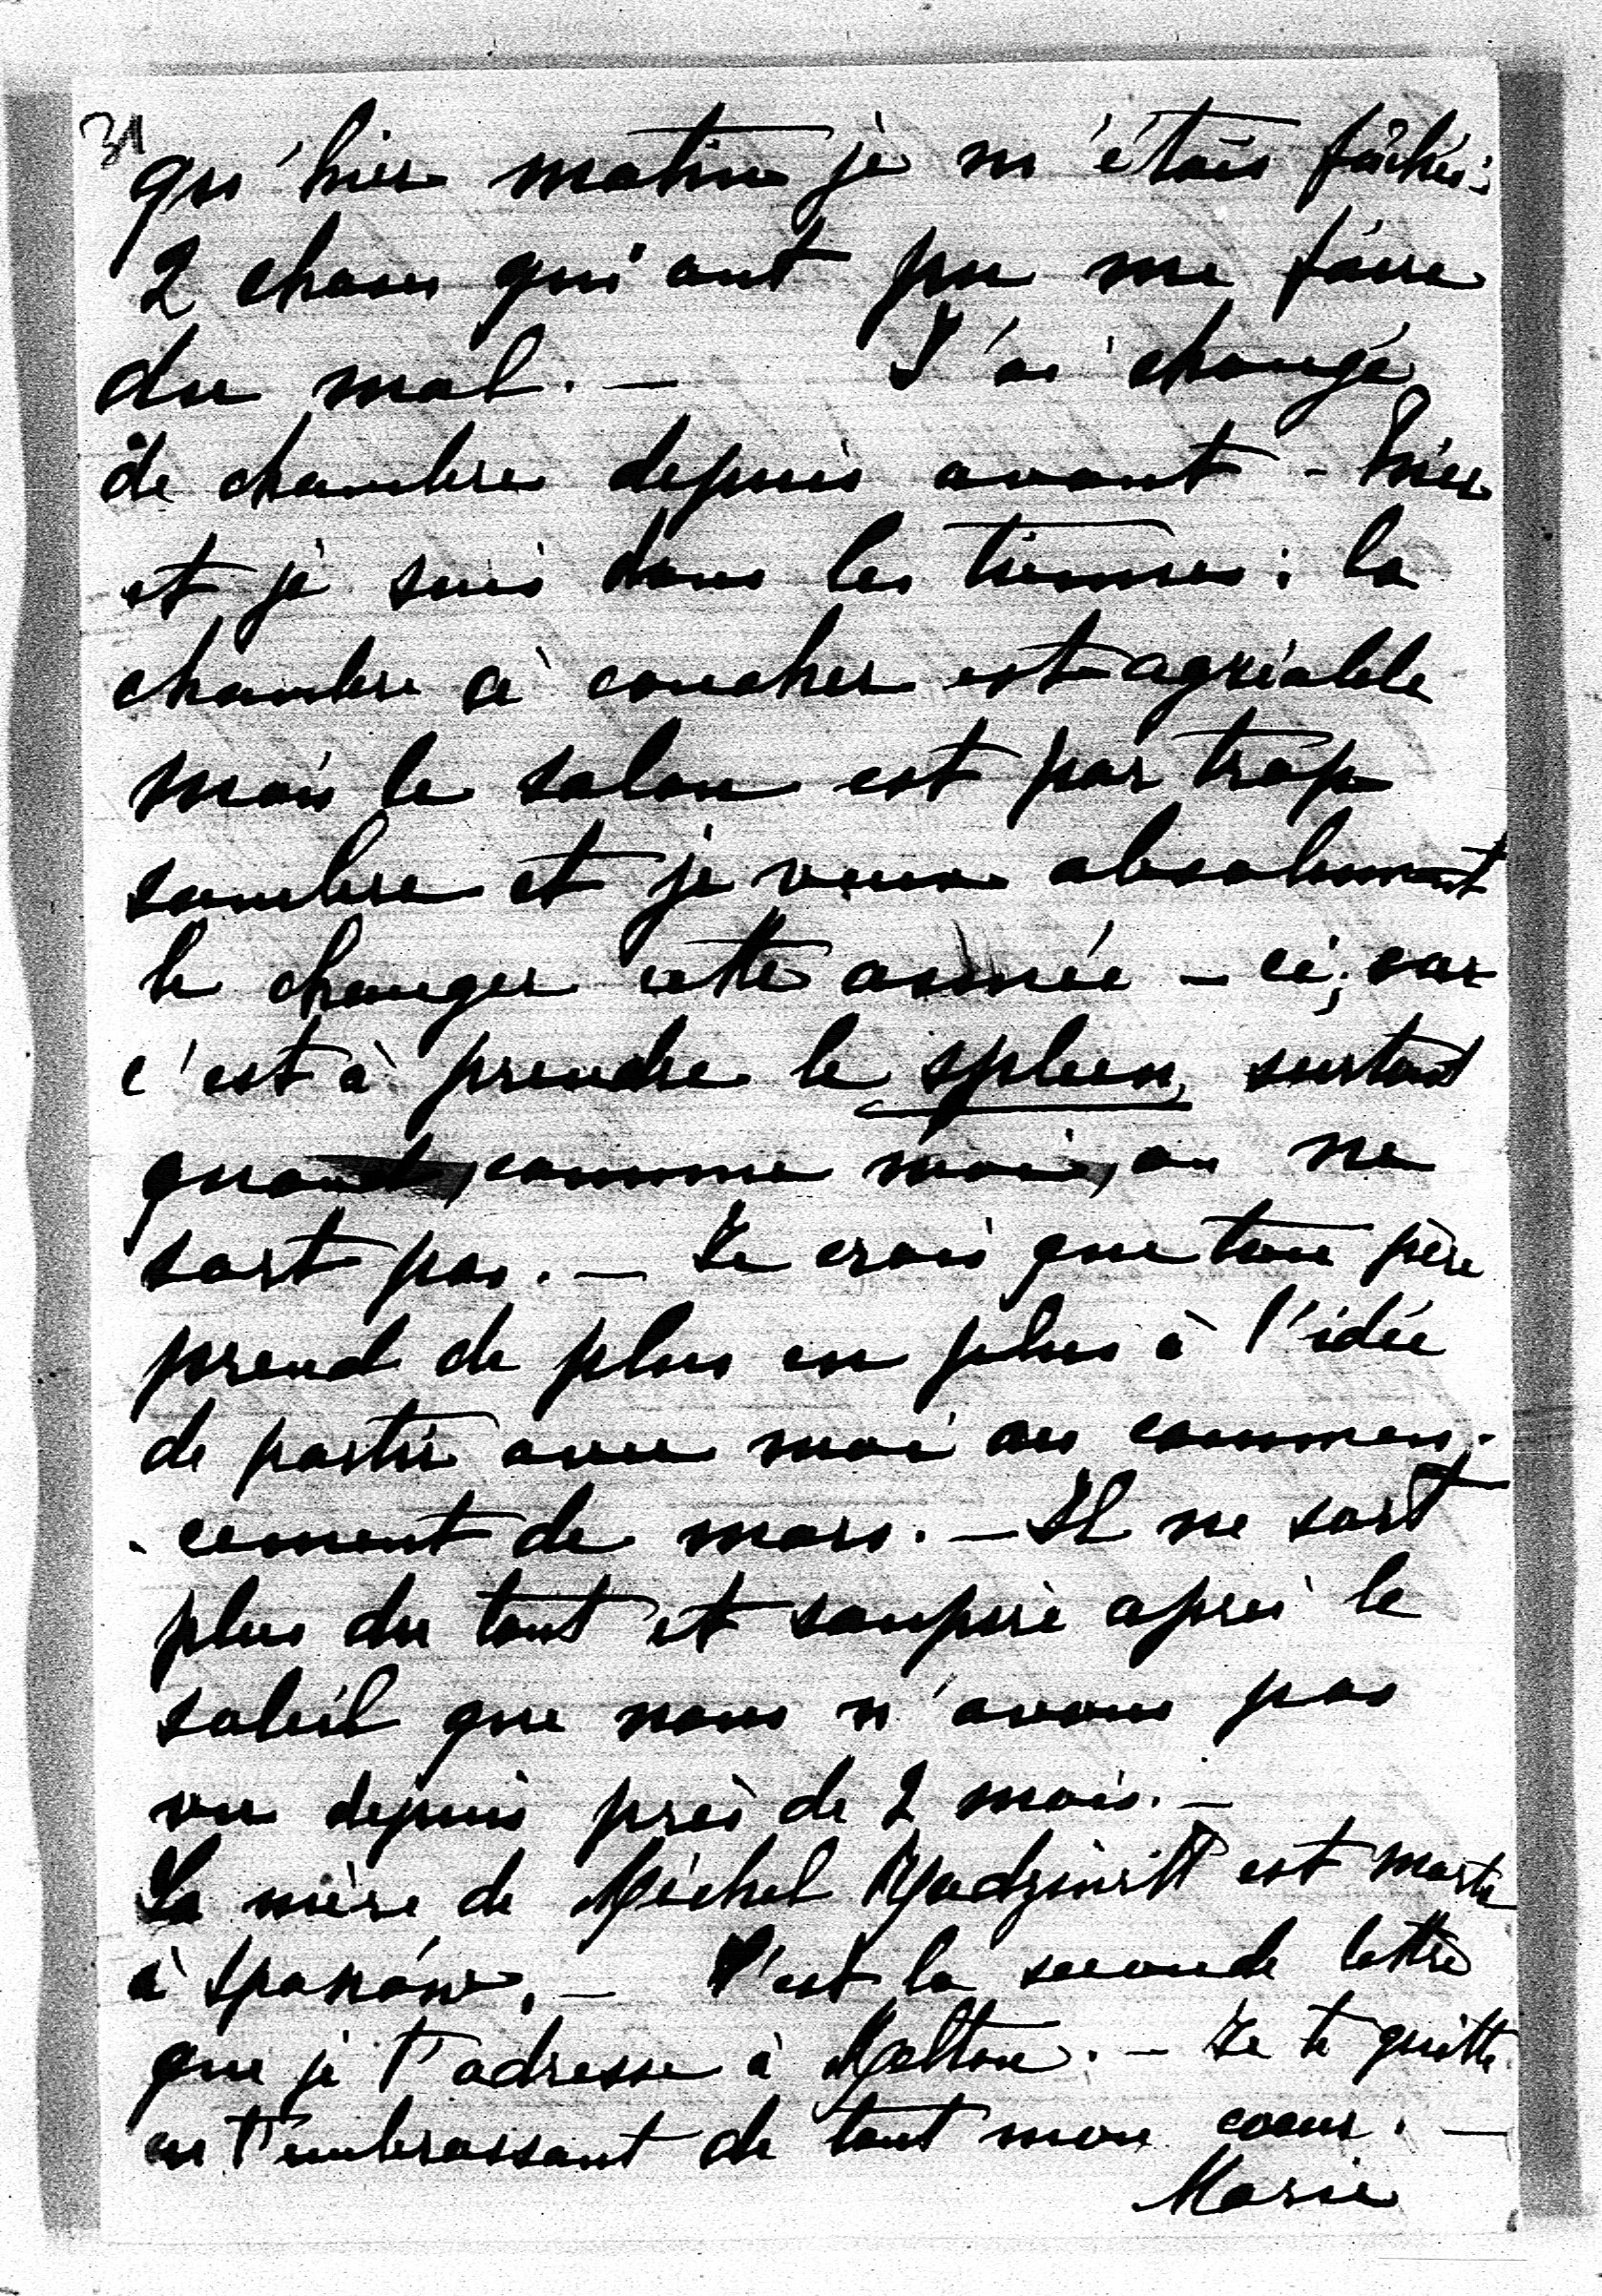 31
qu'hier matin je m'étais fâchée:
2 choses qui ont pu me faire
du mal. — J'ai changé
de chambre depuis avant-hier
et je suis dans les tiennes: la
chambre à coucher est agréable
mais le salon est par trop
sombre et je veux absolument
le changer cette année-ci, car
c'est à prendre le spleen, surtout
quand, comme moi, on ne
sort pas. — Je crois que ton père
prend de plus en plus à l'idée
de partir avec moi au commen-
-cement de mars. — Il ne sort
plus du tout et soupire après le
soleil que nous n'avons pas
vu depuis près de 2 mois. —
La mère de Michel est morte
à Spanów. — C'est la seconde lettre
que je t'adresse à Melton. — Je te quitte
en t'embrassant de tout mon coeur. —
Marie